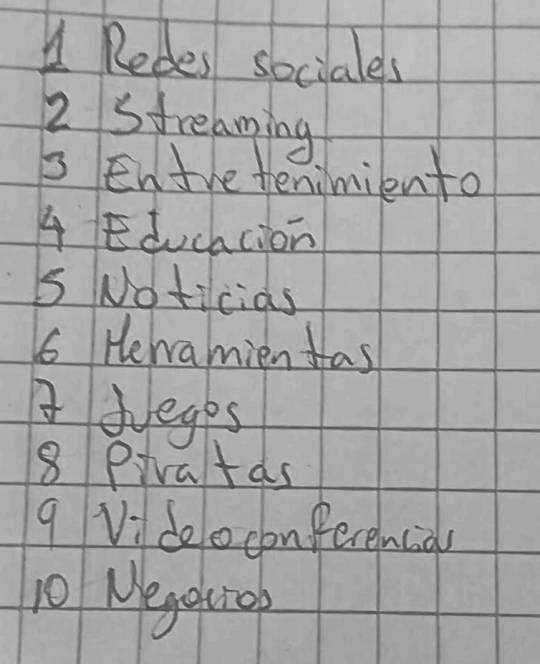 1 Redes sociales
2 Streaming
3 Entretenimiento
4 Educación
5 Noticias
6 Herramientas
7 Juegos
8 Piratas
9 Videoconferencias
10 Negocios